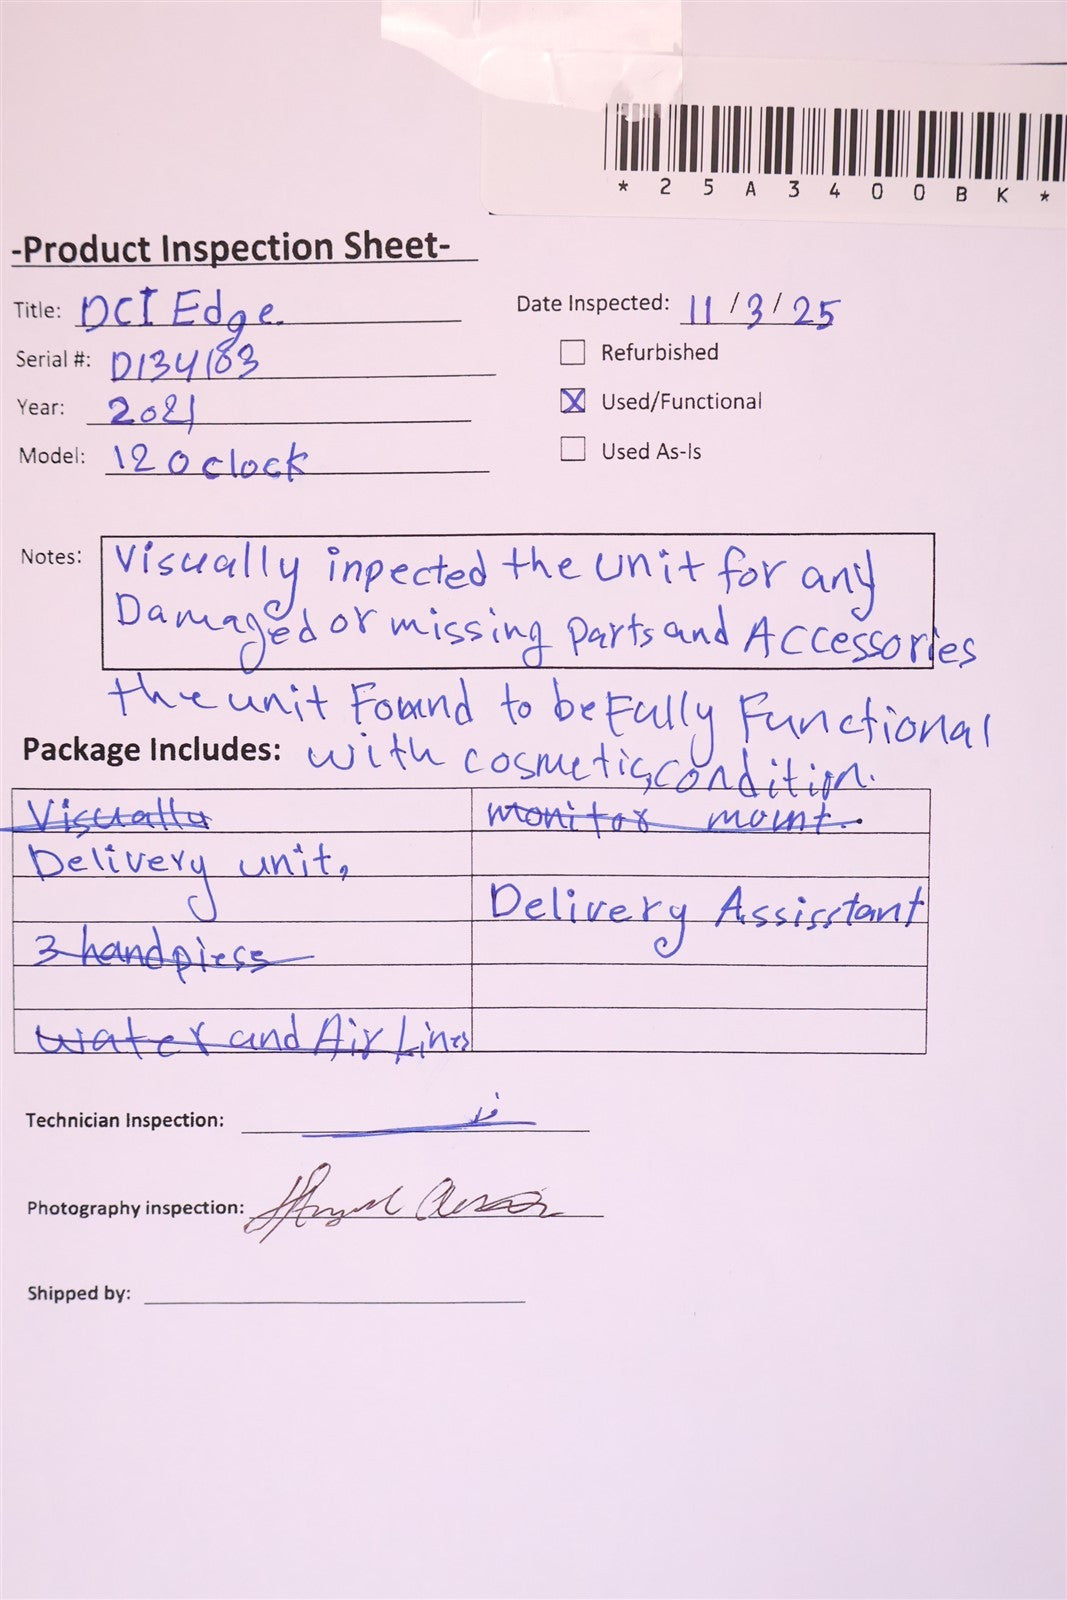 * 2 5 A 3 4 0 0 B K *
-Product Inspection Sheet-
Title: DCI Edge.
Date Inspected: 11/3/25
Serial #: D134183
Refurbished
Year: 2021
Used/Functional
Model: 12 O clock
Used As-Is
Notes: Visually inpected the unit for any
Damaged or missing parts and Accessories
the unit Found to be Fully Functional
Package Includes: with cosmetic condition.
Visually
monitor mount.
Delivery unit,
Delivery Assisstant
3 handpiess
water and Air Lines
Technician Inspection:
Photography inspection:
Shipped by: